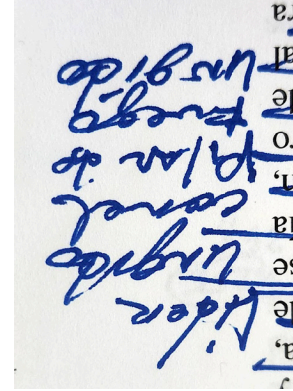 Lider
ungido
con el
Plan de
Fuego
ungido